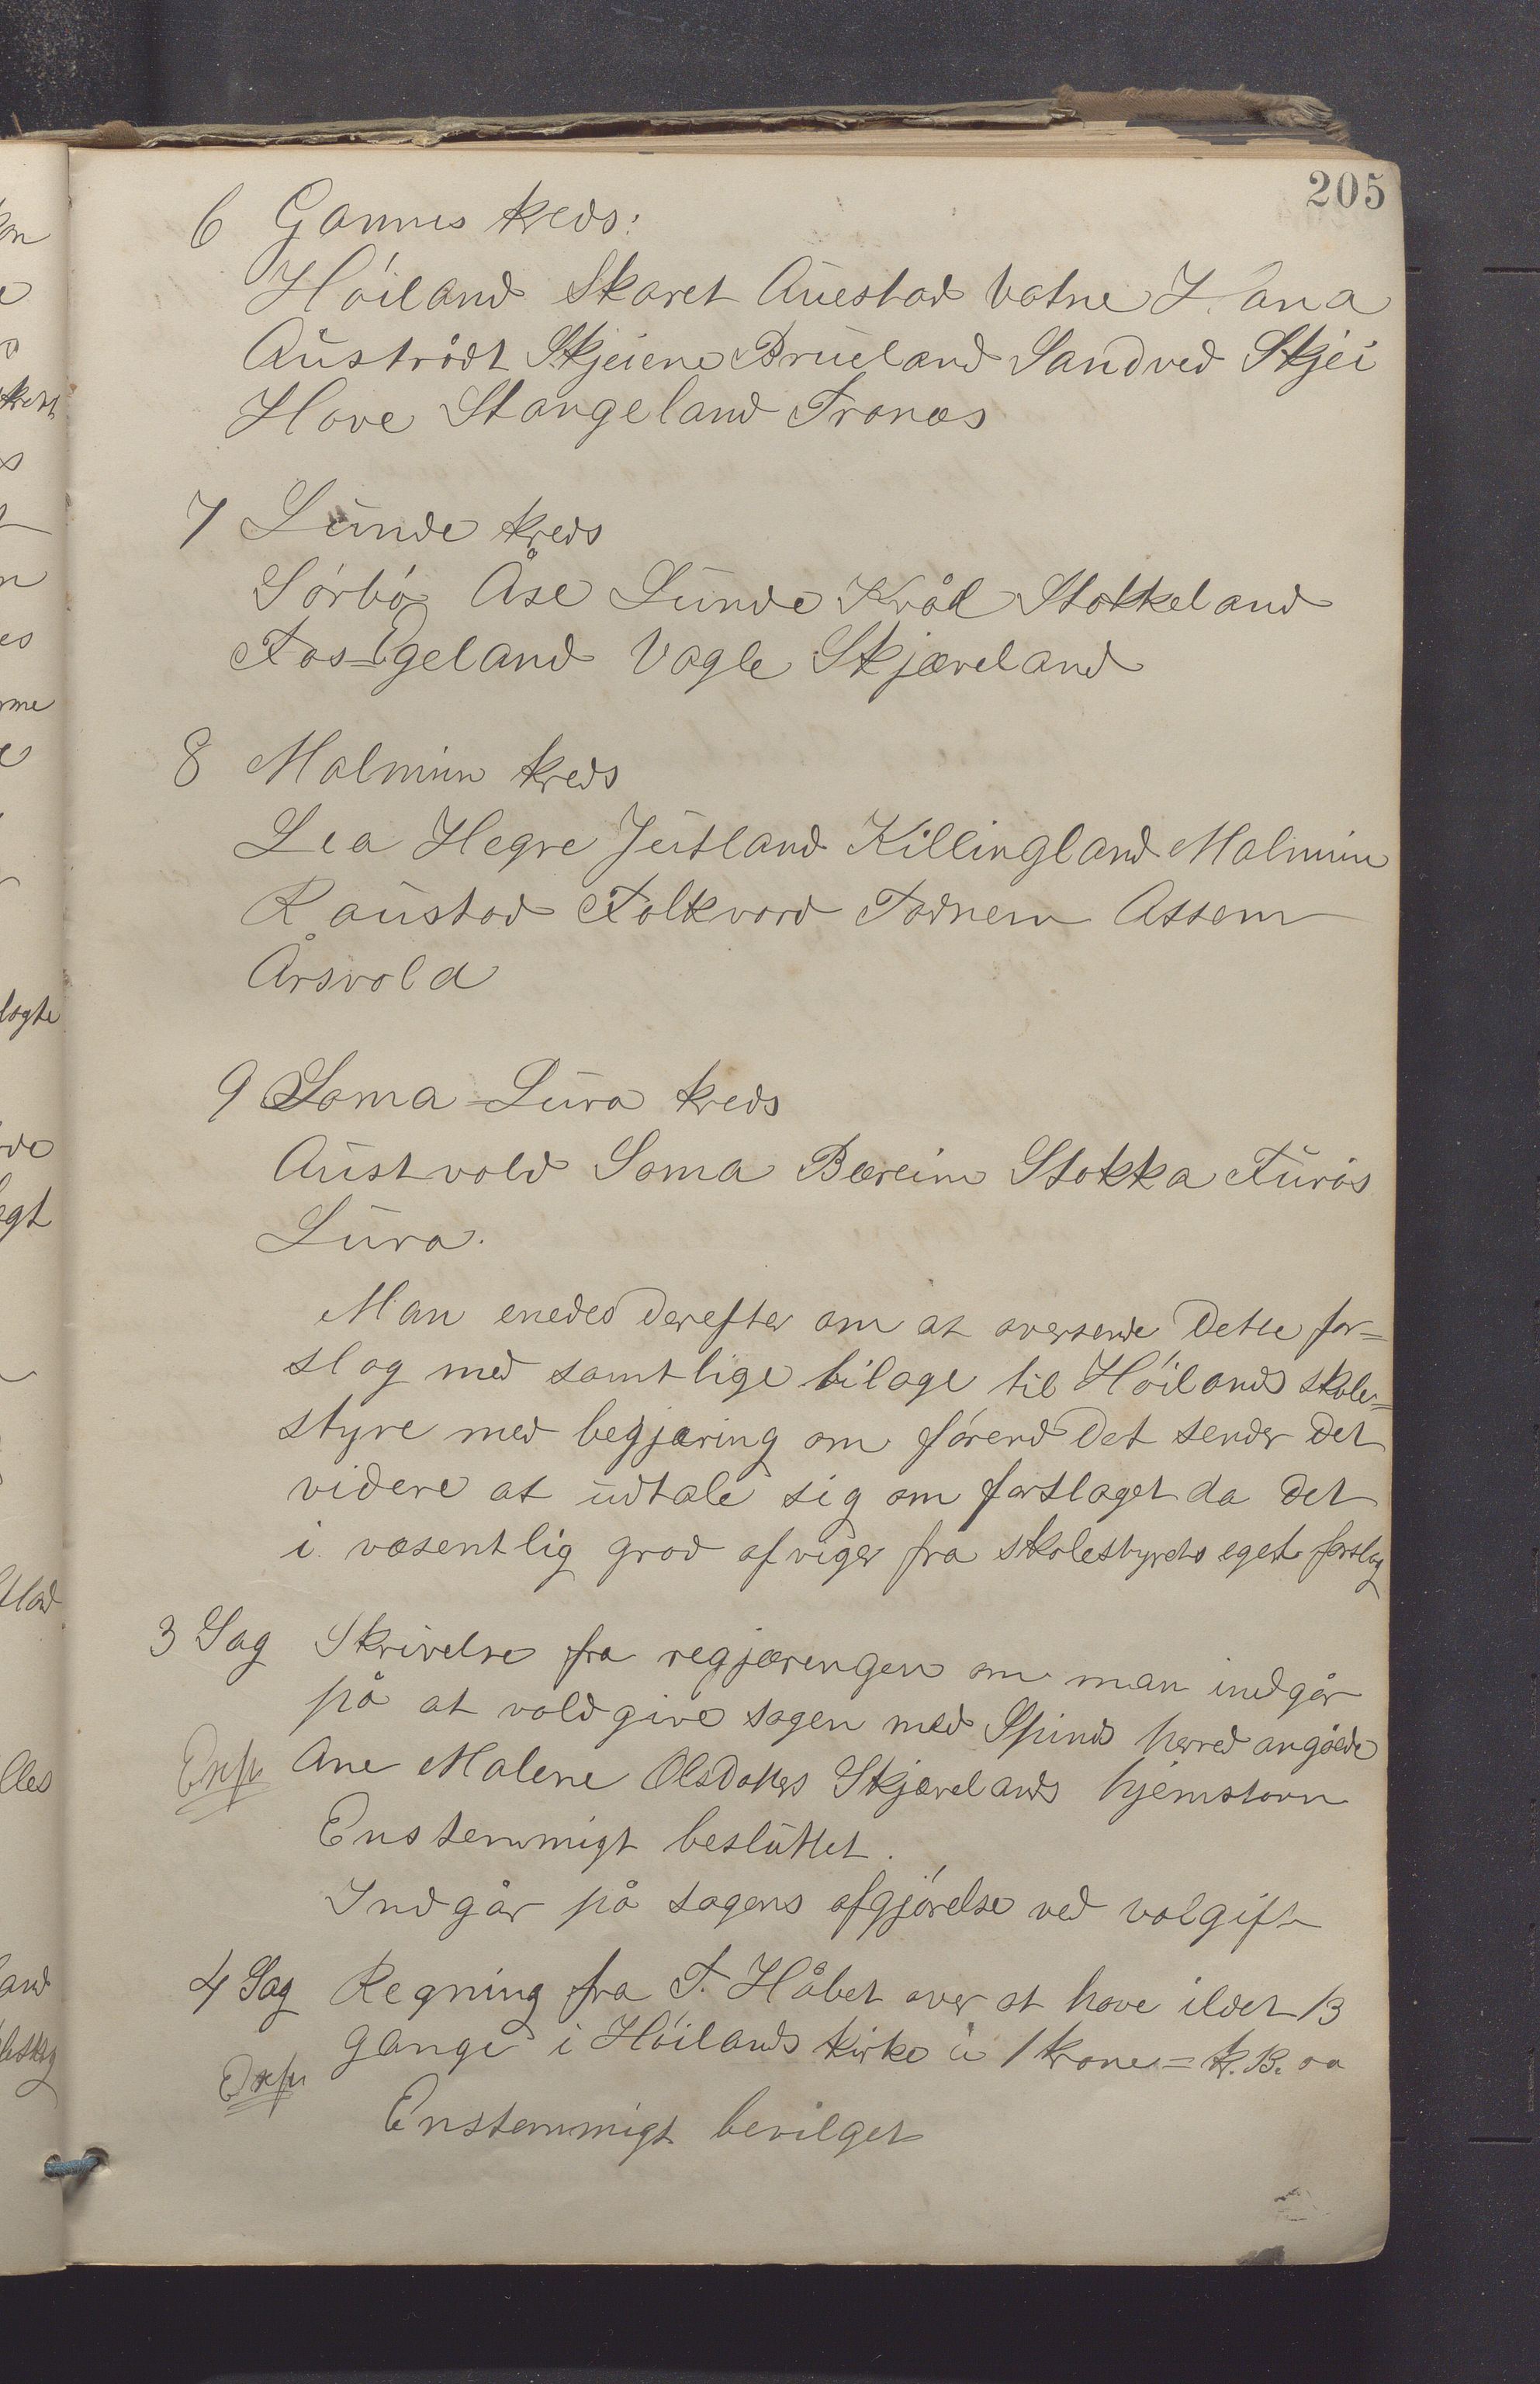 205
6 Gannes kreds:
Höiland Skaret Auestad Vatne Hana
Austrådt Skjeiene Brueland Sandved Skjei
Hove Stangeland Tronæs
7 Lunde kreds
Sörbö Åse Lunde Kvål Stokkeland
Fos=Egeland Vagle Skjæveland
8 Malmim kreds
Lea Hegre Jeitland Killingland Malmim
Raustad Folkvord Todnem Assem
Årsvold
9 Soma=Lura kreds
Austvold Soma Bæreim Stokka Furås
Lura.
Man enedes derefter om at oversende dette for=
slag med samtlige bilage til Höilands skole=
styre med begjæring om förend det sender det
videre at udtale sig om forslaget da det
i væsentlig grad afviger fra skolestyrets eget forslag
3 Sag Skrivelse fra regjæringen om man indgår
på at voldgive sagen med Spinds herred angåede
Exp Ane Malene Olsdatters Skjævelands hjemstavn
Enstemmigt besluttet.
Indgår på sagens afgjörelse ved volgift
4 Sag Regning fra T. Håbet over at have ildet 13
gange i Höilands kirke a 1 krone = kr. 13. oo
Exp
Enstemmigt bevilget